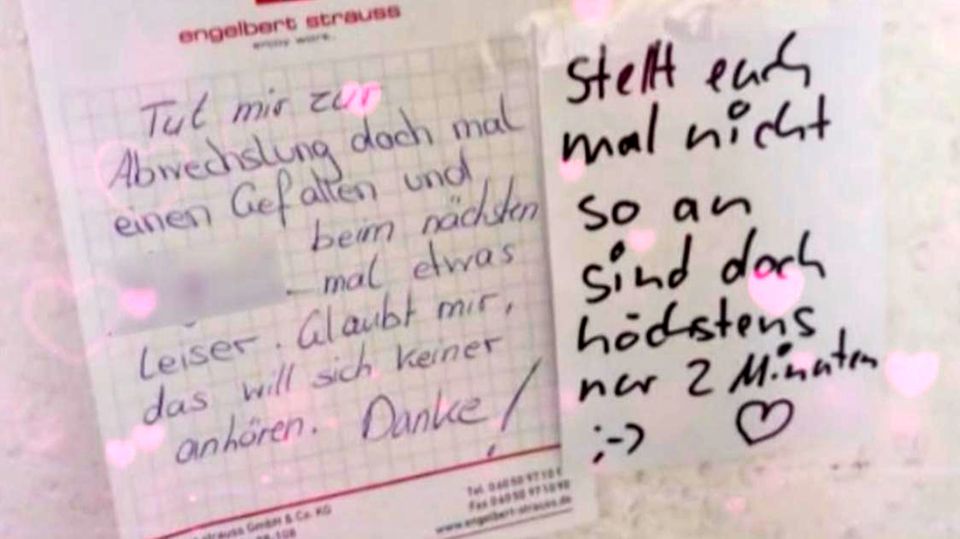 engelbert strauss
enjoy work.
Tut mir zur
Abwechslung doch mal
einen Gefallen und
beim nächsten
mal etwas
leiser. Glaubt mir,
das will sich keiner
anhören. Danke!
strauss GmbH & Co. KG
Tel. 0 60 50 97 10 1
Fax 0 60 50 97 10 90
www.engelbert-strauss.de
Stellt euch
mal nicht
so an
sind doch
höchstens
nur 2 Minuten
;-) ♡